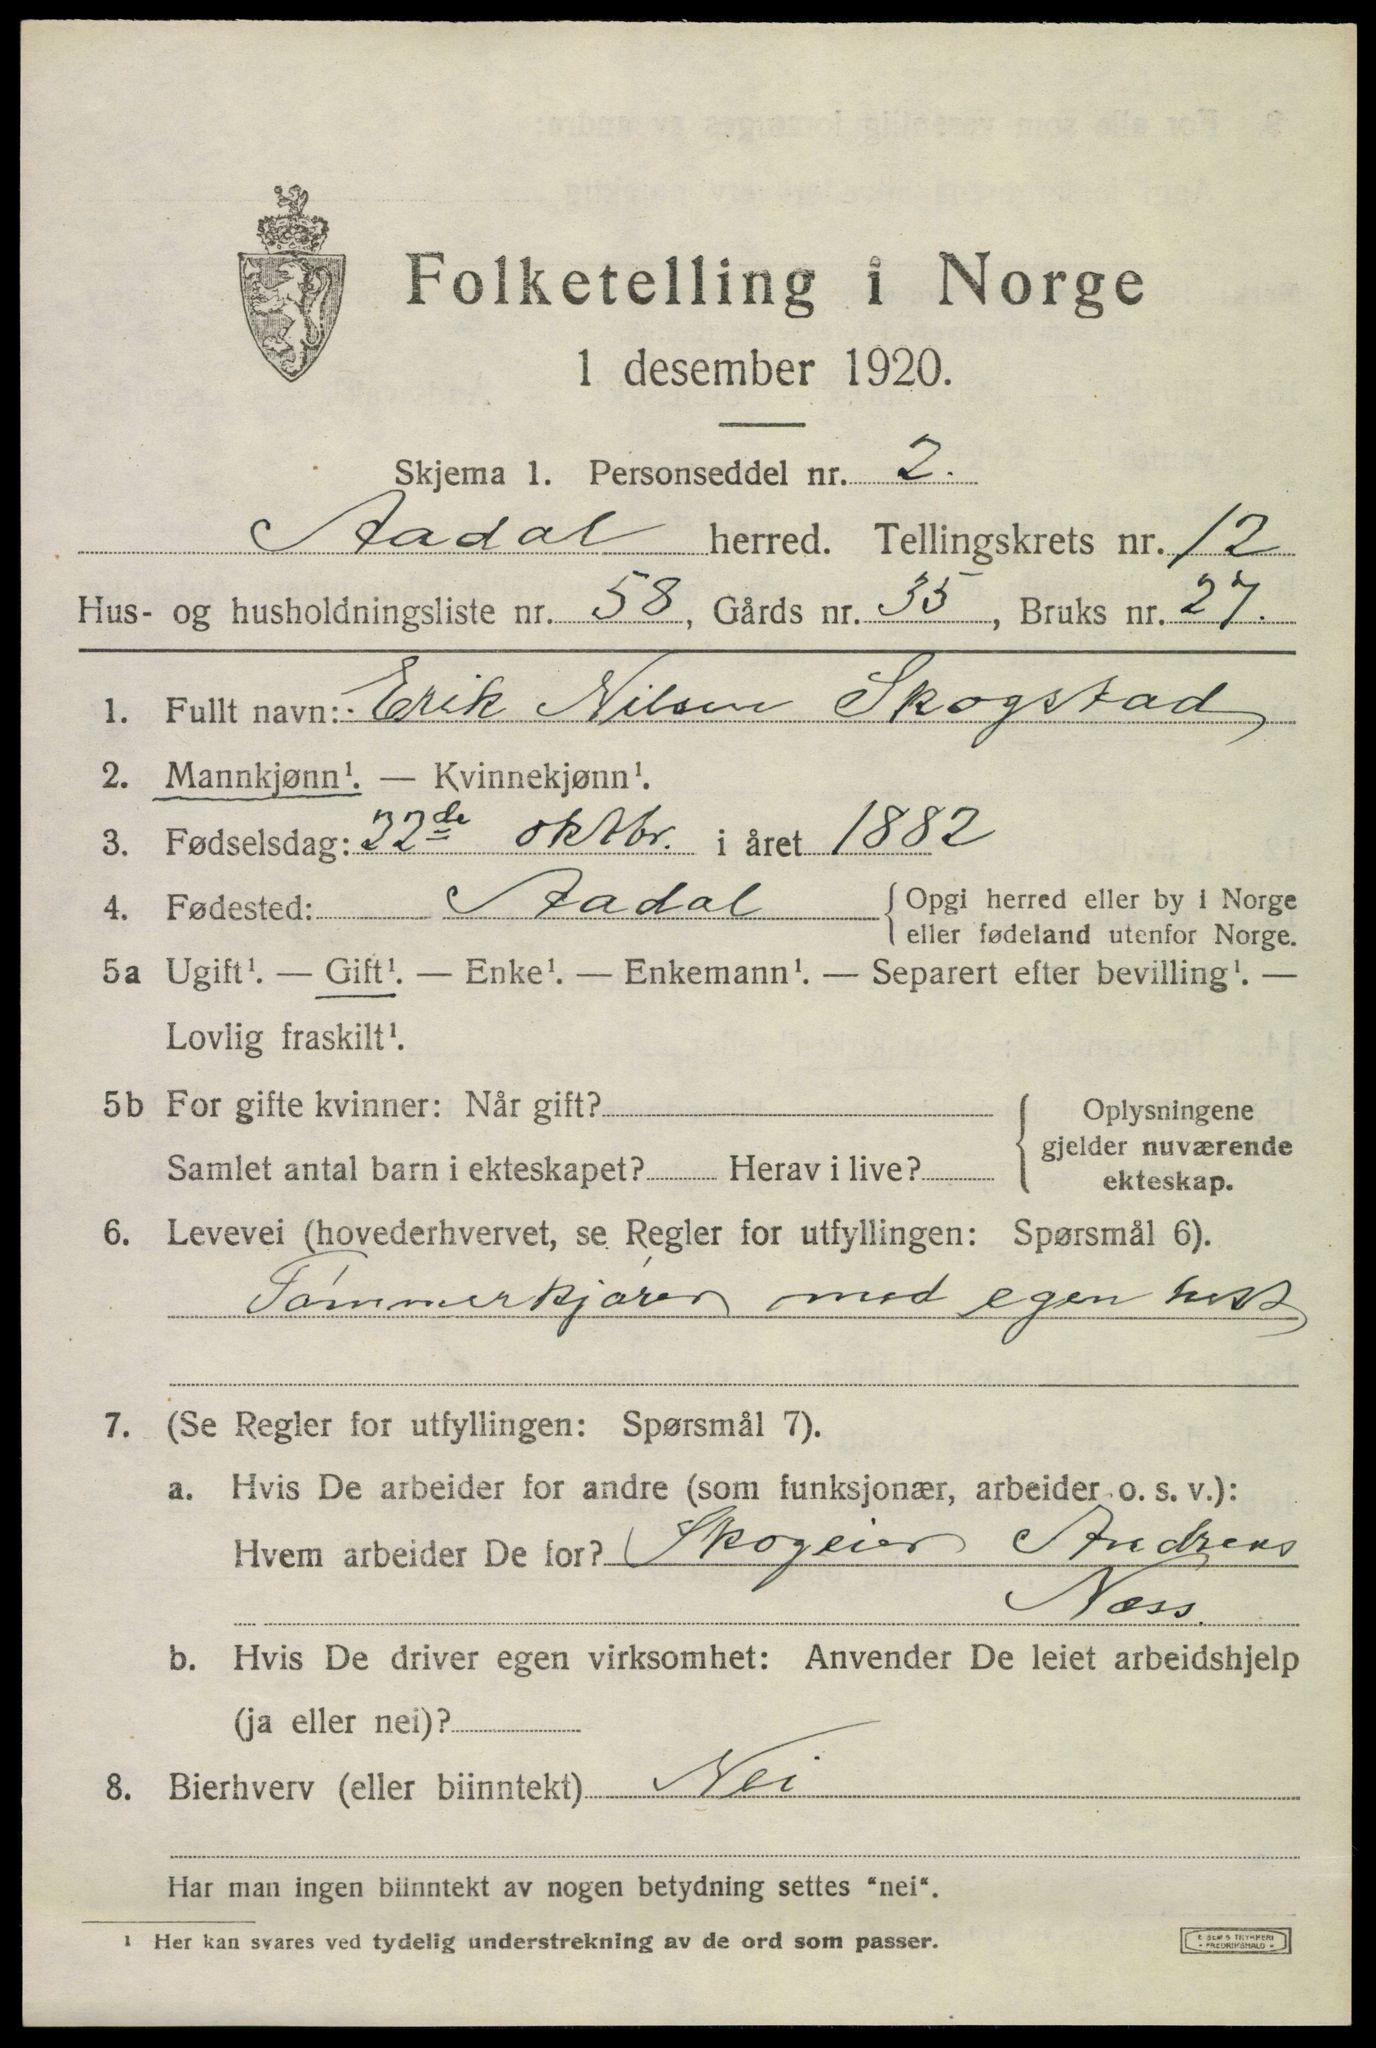 Folketelling i Norge
1 desember 1920.
Skjema 1. Personseddel nr. 2.
Aadal herred. Tellingskrets nr. 12
Hus- og husholdningsliste nr. 58, Gårds nr. 35, Bruks nr. 27.
1. Fullt navn: Erik Nilsen Skogstad
2. Mannkjønn¹. — Kvinnekjønn¹.
3. Fødselsdag: 22de oktbr. i året 1882
4. Fødested: Aadal { Opgi herred eller by i Norge
eller fødeland utenfor Norge.
5a Ugift¹. — Gift¹. — Enke¹. — Enkemann¹. — Separert efter bevilling¹. —
Lovlig fraskilt¹.
5b For gifte kvinner: Når gift?
Samlet antal barn i ekteskapet? Herav i live?
{ Oplysningene
gjelder nuværende
ekteskap.
6. Levevei (hovederhvervet, se Regler for utfyllingen: Spørsmål 6).
Tømmerkjører med egen hest
7. (Se Regler for utfyllingen: Spørsmål 7).
a. Hvis De arbeider for andre (som funksjonær, arbeider o. s. v.):
Hvem arbeider De for? Skogeier Andreas
Næss.
b. Hvis De driver egen virksomhet: Anvender De leiet arbeidshjelp
(ja eller nei)?
8. Bierhverv (eller biinntekt) Nei
Har man ingen biinntekt av nogen betydning settes “nei“.
¹ Her kan svares ved tydelig understrekning av de ord som passer.
TRYKKERI
FREDRIKSHALD